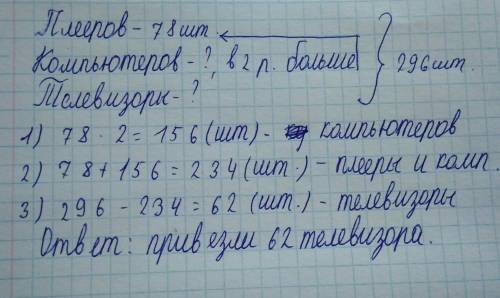 Плееров - 78 шт.
Компьютеров - ?, в 2 р. больше 296 шт.
Телевизоры - ?
1) 78 · 2 = 156 (шт) - компьютеров
2) 78 + 156 = 234 (шт.) - плееры и комп.
3) 296 - 234 = 62 (шт.) - телевизоры
Ответ: привезли 62 телевизора.